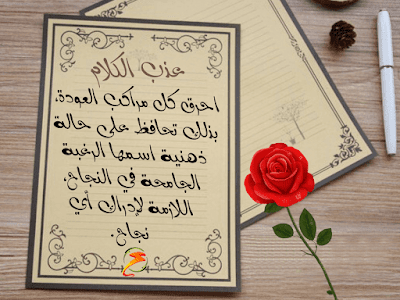 عذب الكلام
احرق كل مراكب العودة،
بذلك تحافظ على حالة
ذهنية اسمها الرغبة
الجامحة في النجاح،
اللازمة لإدراك أي
نجاح.